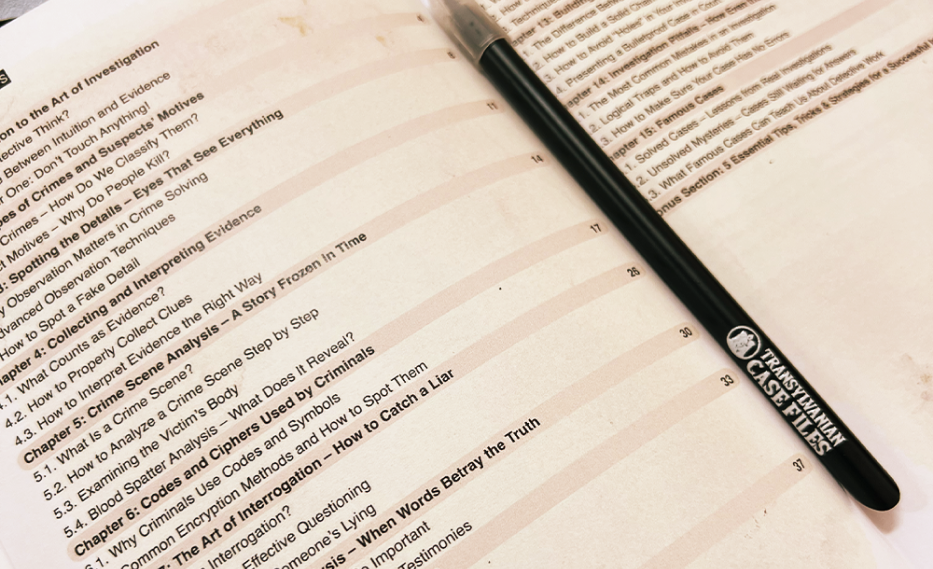 S
on to the Art of Investigation
ective Think?
Between Intuition and Evidence
r One: Don't Touch Anything!
pes of Crimes and Suspects' Motives
Crimes – How Do We Classify Them?
t Motives – Why Do People Kill?
3: Spotting the Details – Eyes That See Everything
y Observation Matters in Crime Solving
dvanced Observation Techniques
How to Spot a Fake Detail
hapter 4: Collecting and Interpreting Evidence
4.1. What Counts as Evidence?
4.2. How to Properly Collect Clues
4.3. How to Interpret Evidence the Right Way
Chapter 5: Crime Scene Analysis – A Story Frozen in Time
5.1. What Is a Crime Scene?
5.2. How to Analyze a Crime Scene Step by Step
5.3. Examining the Victim's Body
5.4. Blood Spatter Analysis – What Does It Reveal?
Chapter 6: Codes and Ciphers Used by Criminals
6.1. Why Criminals Use Codes and Symbols
Common Encryption Methods and How to Spot Them
7: The Art of Interrogation – How to Catch a Liar
Interrogation?
Effective Questioning
Someone's Lying
ysis – When Words Betray the Truth
e Important
Testimonies
8
11
14
17
26
30
33
37
How to Build a Solid Case
3. Presenting a Bulletproof Case
apter 14: Investigation Pitfalls
1. The Most Common Mistakes in an Investigation
2. Logical Traps and How to Avoid Them
3. How to Make Sure Your Case Has No Gaps
Chapter 15: Famous Cases
1. Solved Cases – Lessons from Real Investigations
2. Unsolved Mysteries – Cases Still Waiting for Answers
3. What Famous Cases Can Teach Us About Detective Work
onus Section: 5 Essential Tips, Tricks & Strategies for a Successful
TRANSYLVANIAN
CASE FILES